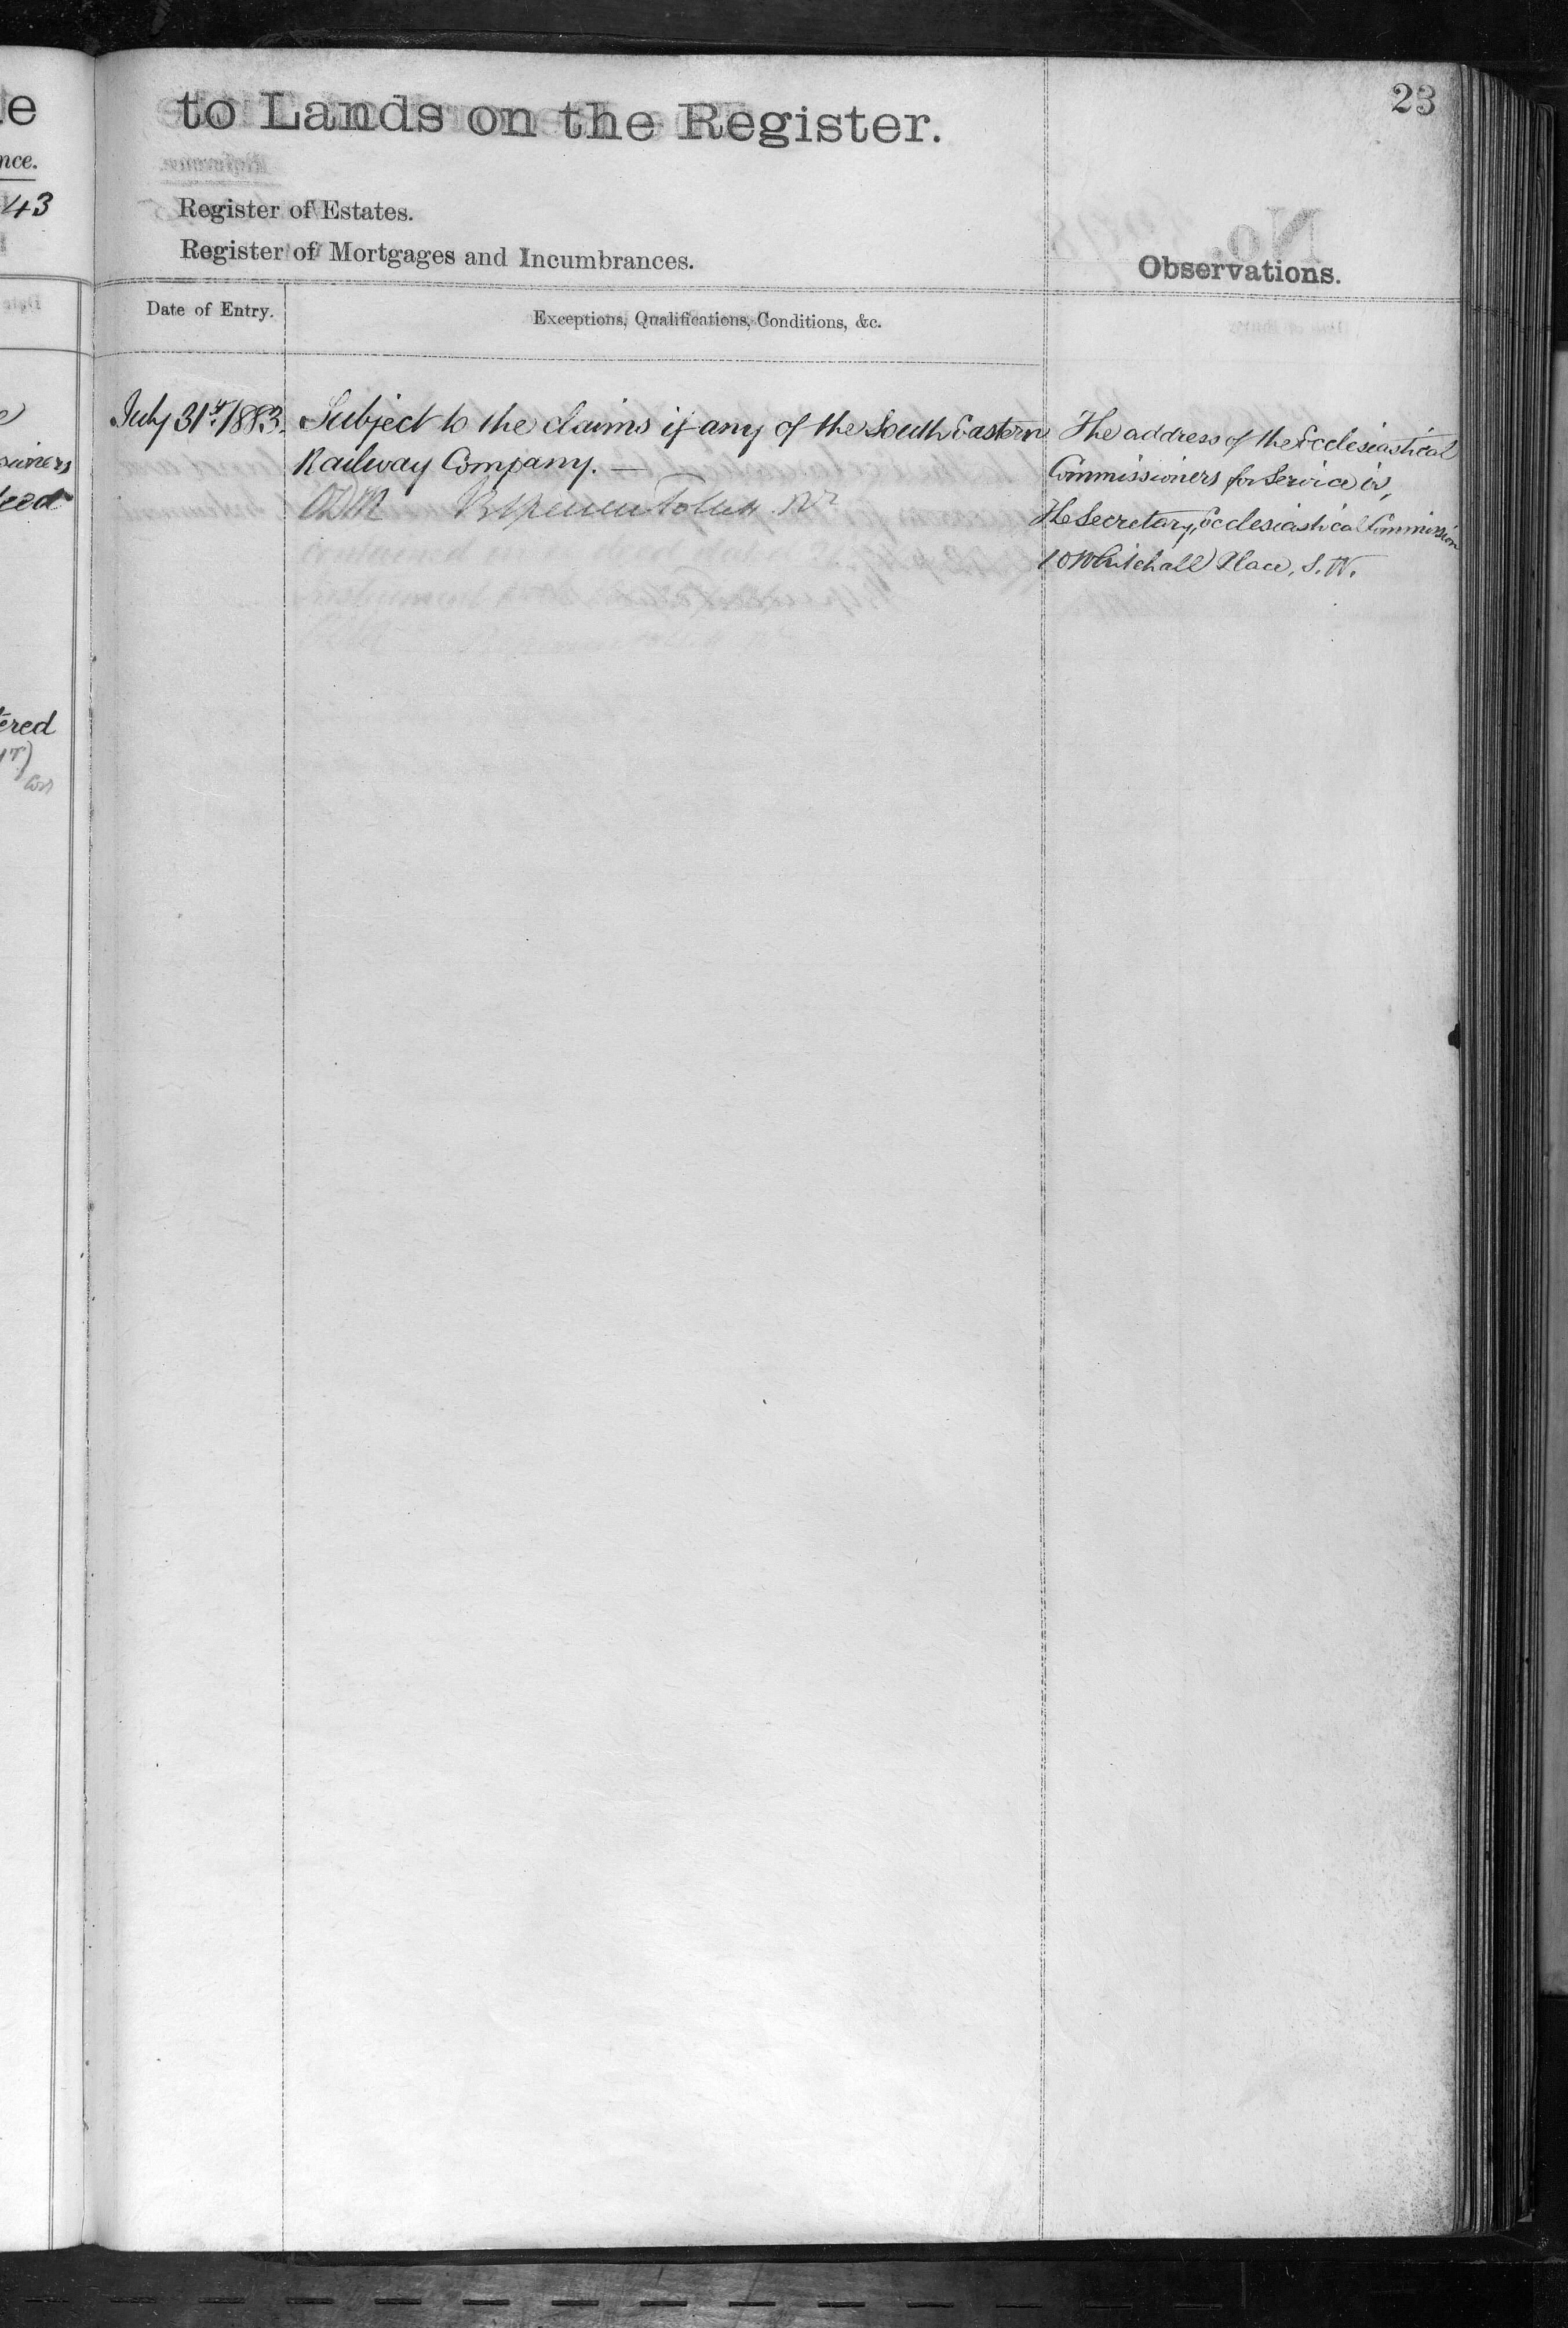 e
nce.
43
eed
ered
23
to Lands on the Register.
Register of Estates.
Register of Mortgages and Incumbrances.
Observations.
Date of Entry.
Exceptions, Qualifications, Conditions, &c.
July 31st 1883.
Subject to the claims if any of the South Eastern
Railway Company. —
The address of the Ecclesiastical
Commissioners for Service is,
The Secretary, Ecclesiastical Commission
10 Whitehall Place, S.W.